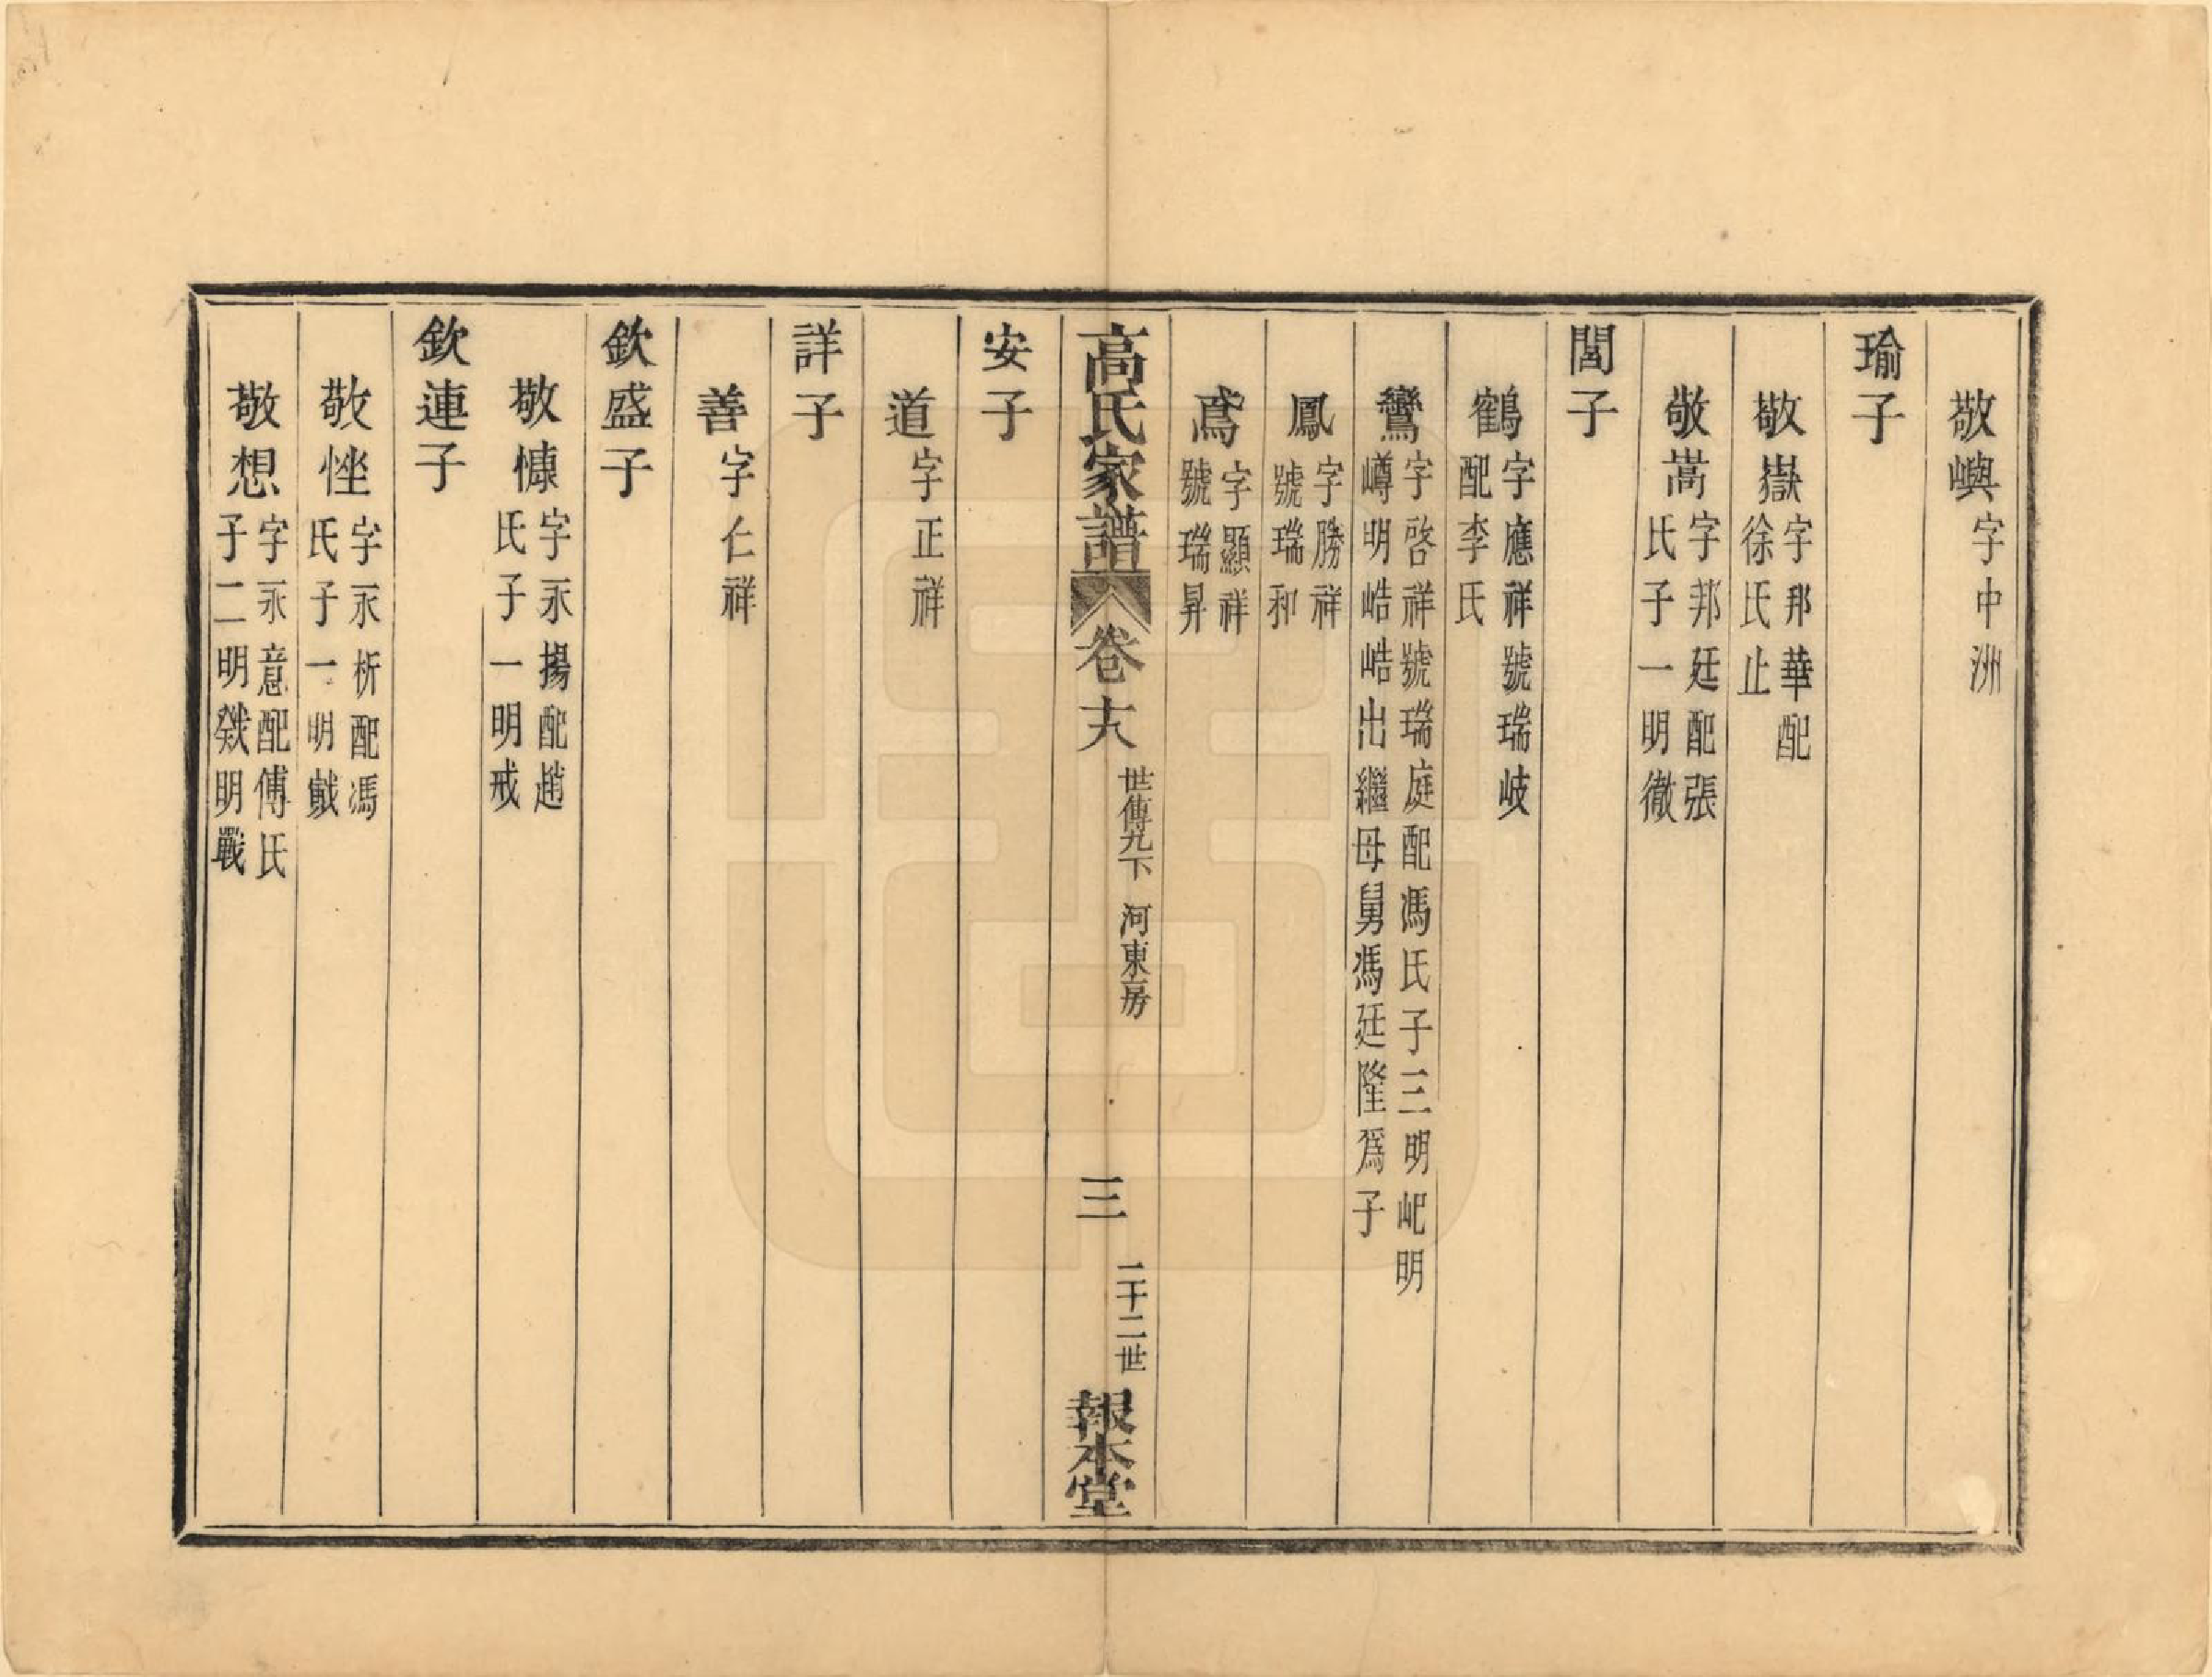 敬嶼字中洲
瑜子
敬嶽字邦華配徐氏止
敬嵩字邦廷配張氏子一明徹
閭子
鶴字應祥號瑞岐配李氏
鸞字啓祥號瑞庭配馮氏子三明屺明嶟明㟹㟹出繼母舅馮廷隆爲子
鳳字勝祥號瑞和
鳶字顯祥號瑞昇
高氏家譜 卷十八 世傳九下 河東房 三 二十二世 報本堂
安子
道字正祥
詳子
善字仁祥
欽盛子
敬慷字永揚配趙氏子一明戒
欽連子
敬㘸字永析配馮氏子一明戭
敬想字永意配傅氏子二明明戰